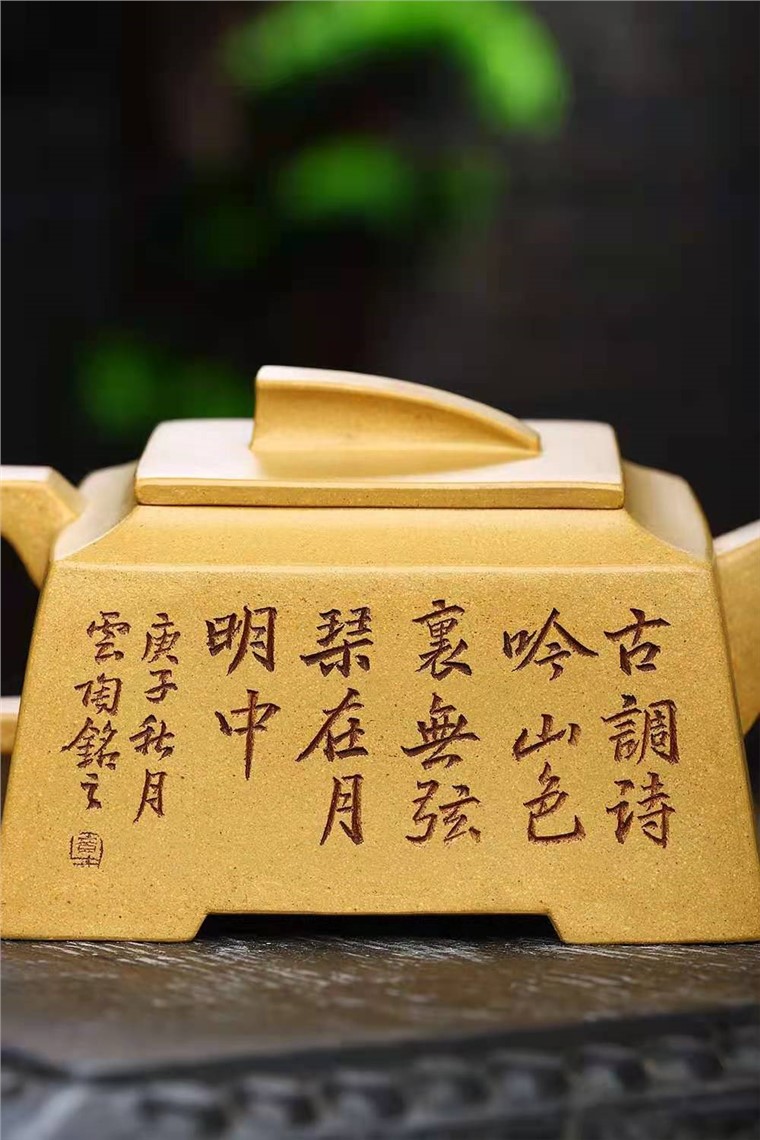 古調诗
吟山色
裏無弦
琹在月
明中
庚子秋月
雲陶銘之